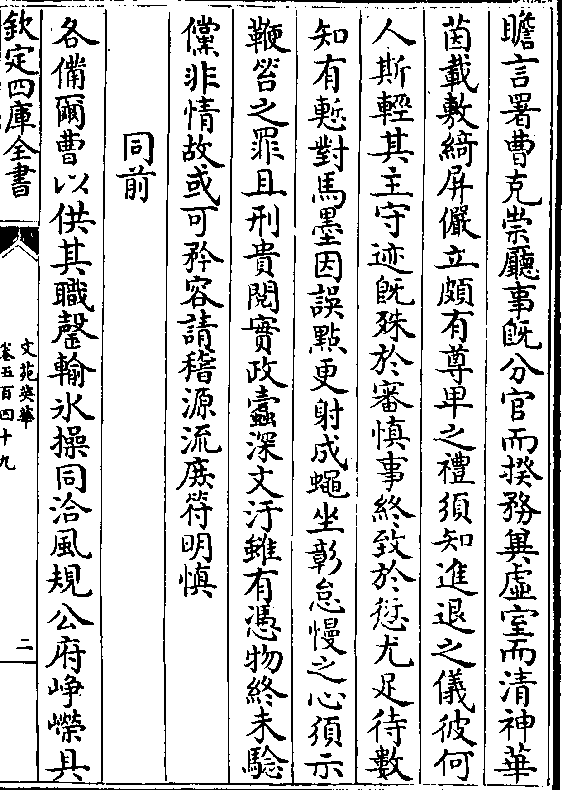 瞻言署曹克崇廳事旣分官而揆務兾虛室而清神華
茵載敷綺屏儼立頗有尊卑之禮須知進退之儀彼何
人斯輕其主守迹旣殊於審慎事終致於愆尤足待數
知有慙對馬墨因誤點更射成蠅坐彰怠慢之心須示
鞭笞之罪且刑貴閱實政蠹深文汙雖有憑物終未驗
儻非情故或可矜容請稽源流庶符明慎
同前
各備爾曹以供其職罄輸氷操同洽風規公府崢嶸具
欽定四庫全書
文苑英華
卷五百四十九
二